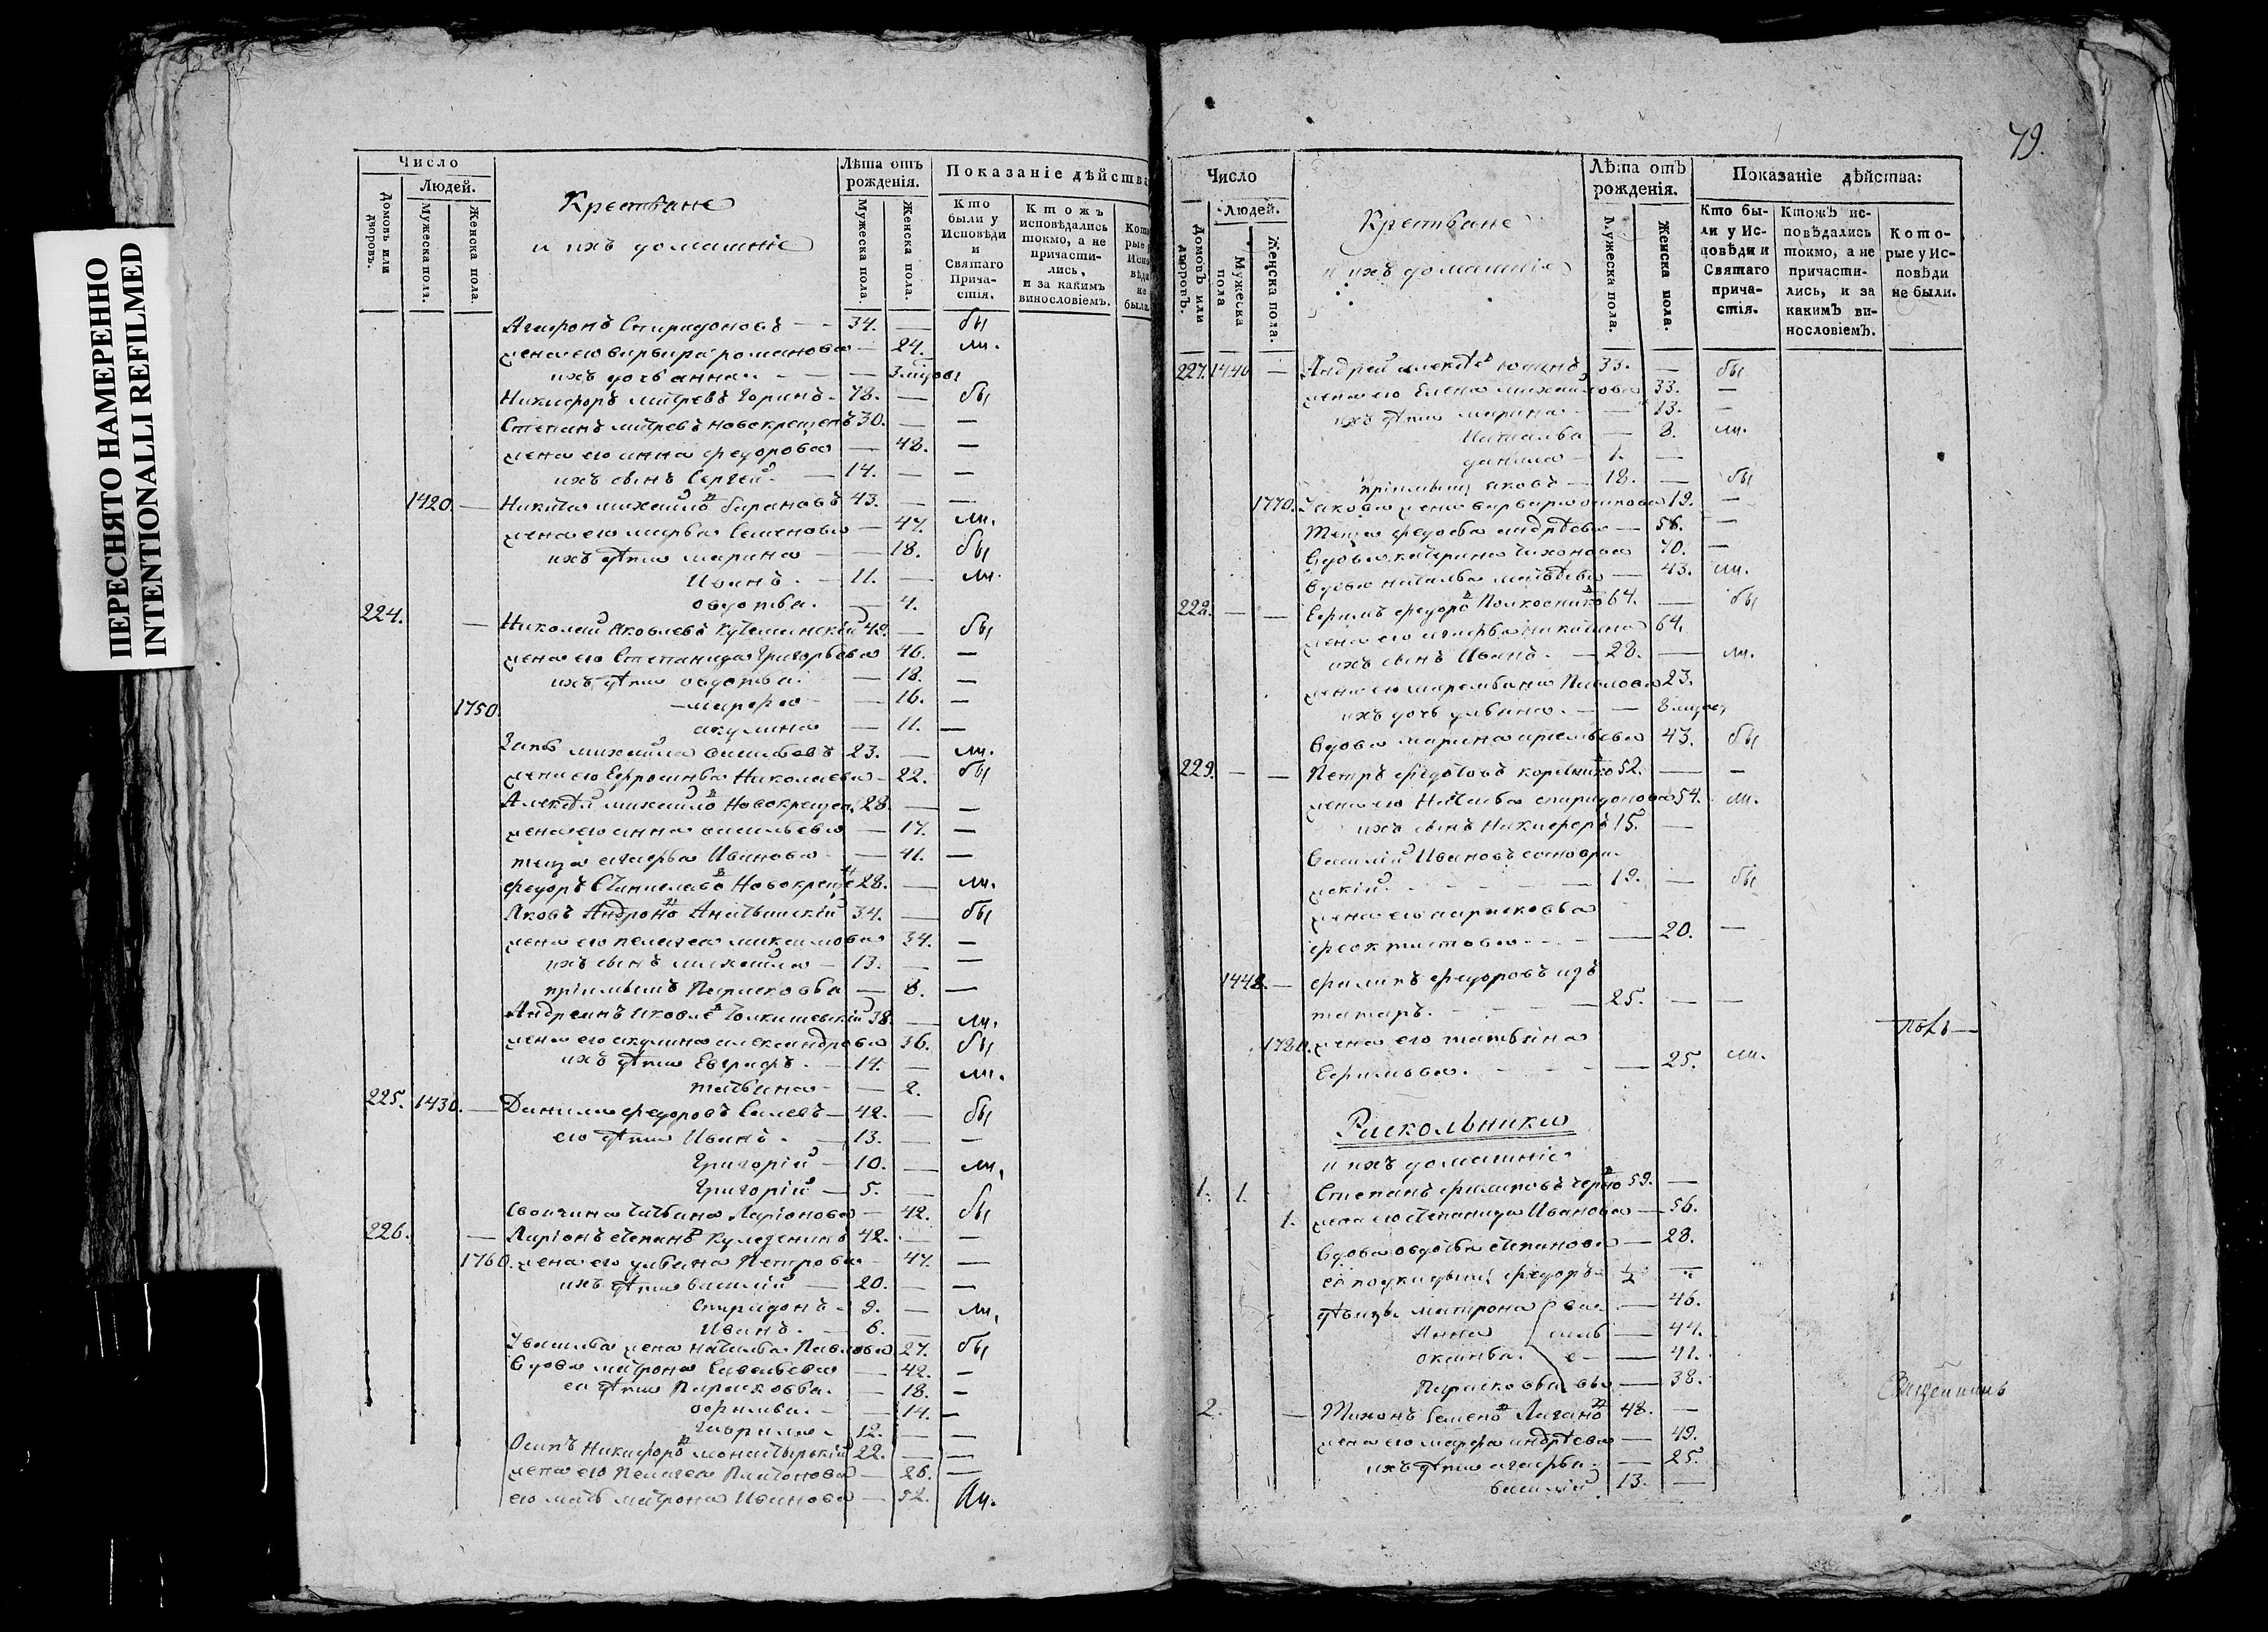 ПЕРЕСНЯТО НАМЕРЕННО
INTENTIONALLI REFILMED
Число
Людей.
Домовъ или дворовъ.
Мужеска пола.
Женска пола.
Крестьяне
и ихъ домашніе
Лѣта отъ рожденія.
Мужеска пола.
Женска пола.
Показаніе дѣйства
Кто были у Исповѣди и Святаго Причастія.
Ктожъ исповѣдались токмо, а не причастились, и за какимъ винословіемъ.
Кото рые Испо вѣди не были
Агафонъ Спиридоновъ — 34. — бы
жена его варвара романова — 24. ли.
ихъ дочь анна — 3 мѣсец
Никифоръ митревъ Горинъ 78. — бы
Степанъ митревъ новокрещенъ 30. — —
жена его анна федорова — 48. —
ихъ сынъ Сергей 14. — —
1420. — Никита михайловъ барановъ 43. — —
жена его марѳа Семенова — 47. ли.
ихъ дѣти марина — 18. бы
Иванъ 11. — ли.
овдотья — 4.
224. — Николай Яковлевъ 42. — бы
жена его Степанида Григорьева 46. —
ихъ дѣти овдотья — 18. —
1750. марфа — 16. —
акулина — 11. —
Зять михаила васильевъ 23. — ли.
жена его Ефросинья Николаева 22. бы
Алексѣй михайловъ Новокрещен 28. — —
жена его анна васильева — 17. —
теща агафья Иванова — 41. —
федоръ Новокреще 28. — ли.
Яковъ Андроновъ 34. — бы
жена его пелагея максимова 34. —
ихъ сынъ михаила 13. — —
пріемышъ Парасковья — 8. —
Андреянъ яковлевъ 38. — ли.
жена его акулина александрова 36. бы
ихъ дѣти Евграфъ 14. — ли.
татьяна — 2.
225. 1430. — Данила федоровъ 42. — бы
его дѣти Иванъ 13. — —
Григорій 10. — ли.
Григорій 5. —
татьяна Ларіонова — 42. бы
226. — Ларіонъ степанъ 42. — —
1760. жена его ульяна Петрова 47. —
ихъ дѣти василій 20. — —
Спиридонъ 9. — ли.
Иванъ 6. —
жена наталья Павлова 27. бы
Вдова матрона Савельева — 42. —
ея дѣти Парасковья — 18. —
офимья — 14. —
Гаврила 12. — —
Осипъ Никифоровъ монастырскій 22. — —
жена его Пелагея Платонова — 26. —
его мать матрона Иванова — 52. ли.
79.
Число
Людей.
Домовъ или дворовъ.
Мужеска пола
Женска пола.
Крестьяне
и ихъ домашніе
Лѣта отъ рожденія.
Мужеска пола.
Женска пола.
Показаніе дѣйства:
Кто были у Исповѣди и Святаго причастія.
Ктожъ исповѣдались токмо, а не причастились, и за какимъ винословіемъ.
Которые у Исповѣди не были.
227. 1440 — Андрей алексѣевъ 33. — бы
жена его Елена михайлова 33. —
ихъ дѣти марина — 13. —
Наталья — 8. ли.
данила 1. —
пріемышъ яковъ 18. — бы
1770. Якова жена варвара осипова 19. —
Теща федосья андрѣева — 56. —
Вдова катерина тихонова 70. —
Вдова наталья матвѣева — 43. ли.
228. — — Ефимъ федоровъ 64. — бы
жена его агафья никитина 64.
ихъ сынъ Иванъ 28. — ли.
жена его маремьяна Павлова 23.
ихъ дочь ульяна — 8 мѣсец
Вдова марина 43. бы
229. — — Петръ федотовъ 52. — —
жена его Наталья спиридонова 54. ли.
ихъ сынъ Никифоръ 15. —
Василій Ивановъ
19. — бы
жена его парасковья
феоктистова — 20. —
1448. — филипъ федоровъ изъ
татаръ 25. — —
1780. жена его татьяна
Ефимова — 25. ли.
Раскольники
и ихъ домашніе
1. 1. Степанъ филиповъ 59. —
1. жена его степанида Иванова — 56.
Вдова овдотья степанова — 28.
ея подкидышъ федоръ ½ —
дѣвицы матрона — 46.
Анна — 44.
оксинья — 41.
Парасковья — 38.
2. — Тихонъ Семеновъ 48. —
жена его марфа андрѣева — 49.
ихъ дѣти агафья — 25.
василій 13. —